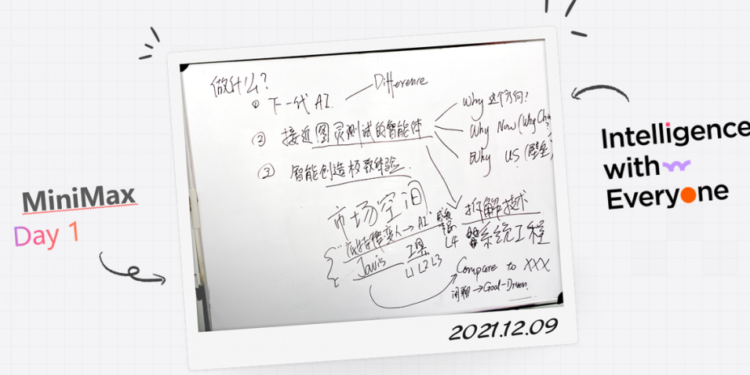 MiniMax
Day 1
做什么?
① 下一代 AI. Difference
② 接近图灵测试的智能体
③ 智能创造极致体验.
Why 这个方向?
Why Now (Why
Why US (壁垒
市场空间
Jarvis 工具
L1 L2 L3 L4
拆解技术
系统工程
Compare to XXX
闲聊 → Goal-Driven
2021.12.09
Intelligence
with
Everyone